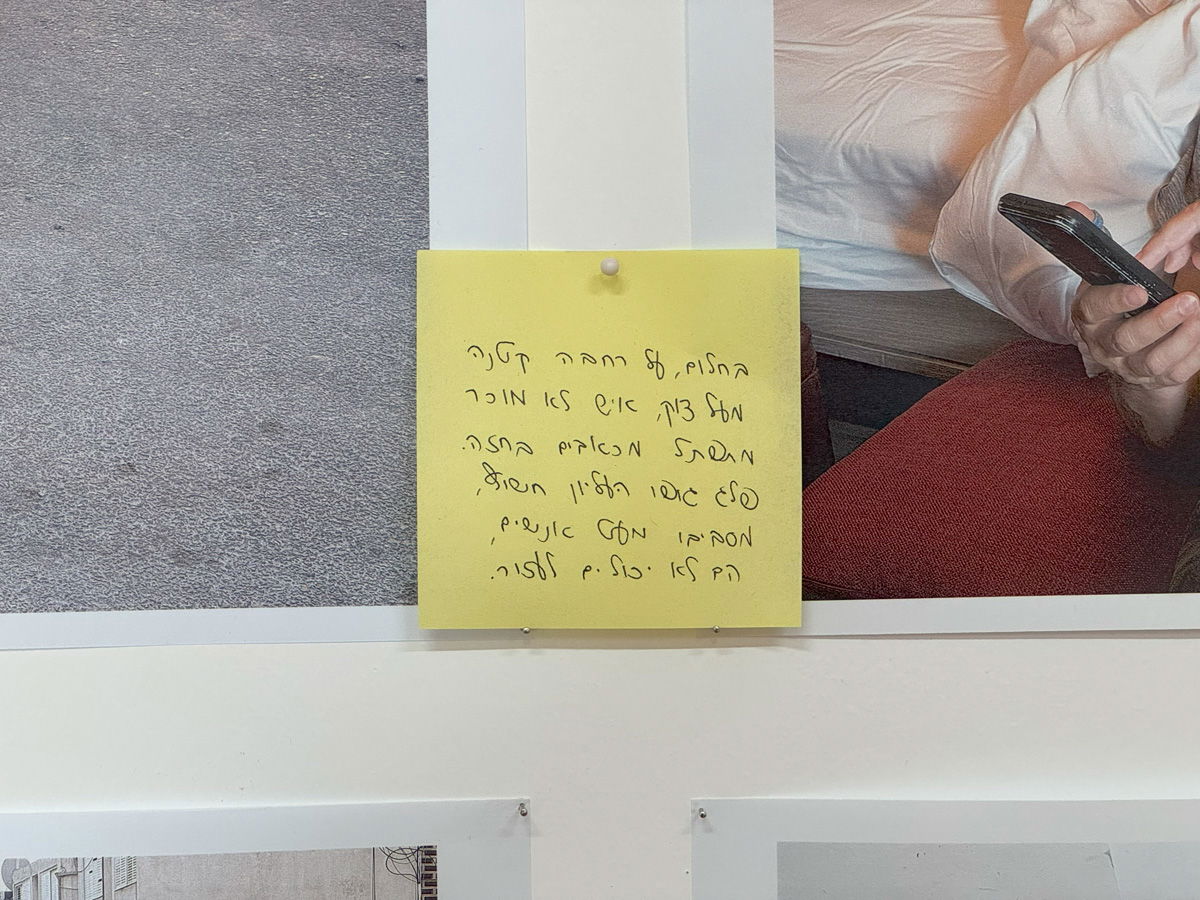 בחלום, על רחבה קטנה
מעל צוק, איש לא מוכר
מתפתל מכאבים בחזה.
פלג גופו העליון חשוף,
מסביבו מעט אנשים,
הם לא יכולים לעזור.